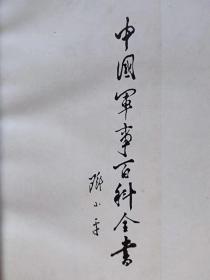 中國軍事百科全書
邓小平